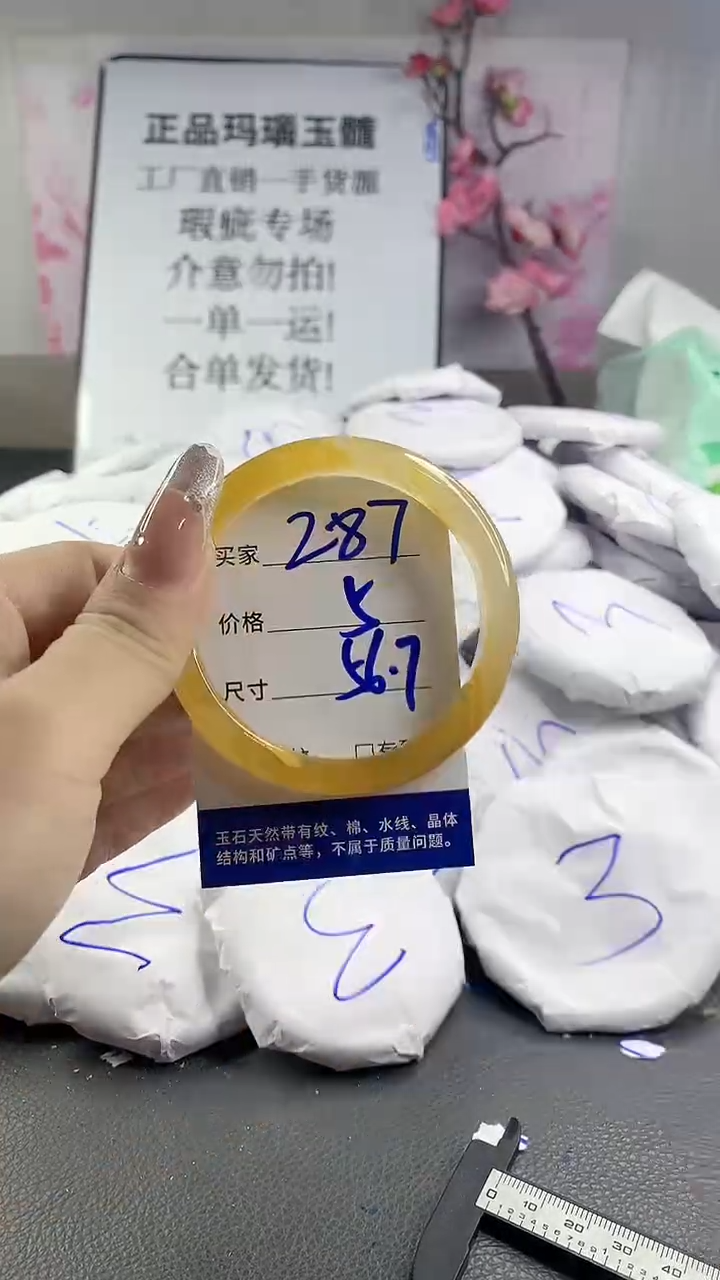 正品玛瑙玉髓
工厂直销一手货源
瑕疵专场
介意勿拍!
一单一运!
合单发货!
买家 287
价格 5
尺寸 56.7
玉石天然带有纹、棉、水线、晶体
结构和矿点等，不属于质量问题。
3
3
3
3
0 10 20 30 40